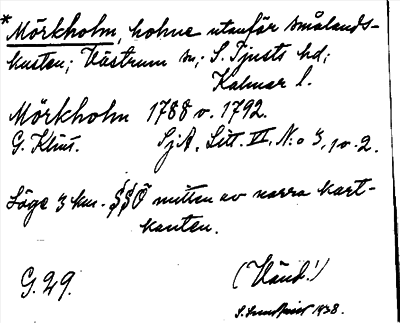 *Mörkholm, holme utanför smålands-
kusten; Västrum sn; S. Tjusts hd;
Kalmar l.
Mörkholm 1788 o. 1792.
G. Klint. SjA. Litt. VI, N:o 3, 1 o. 2.
Läge 3 km. SSÖ mitten av norra kart-
kanten.
G. 29. (Vänd!)
1938.